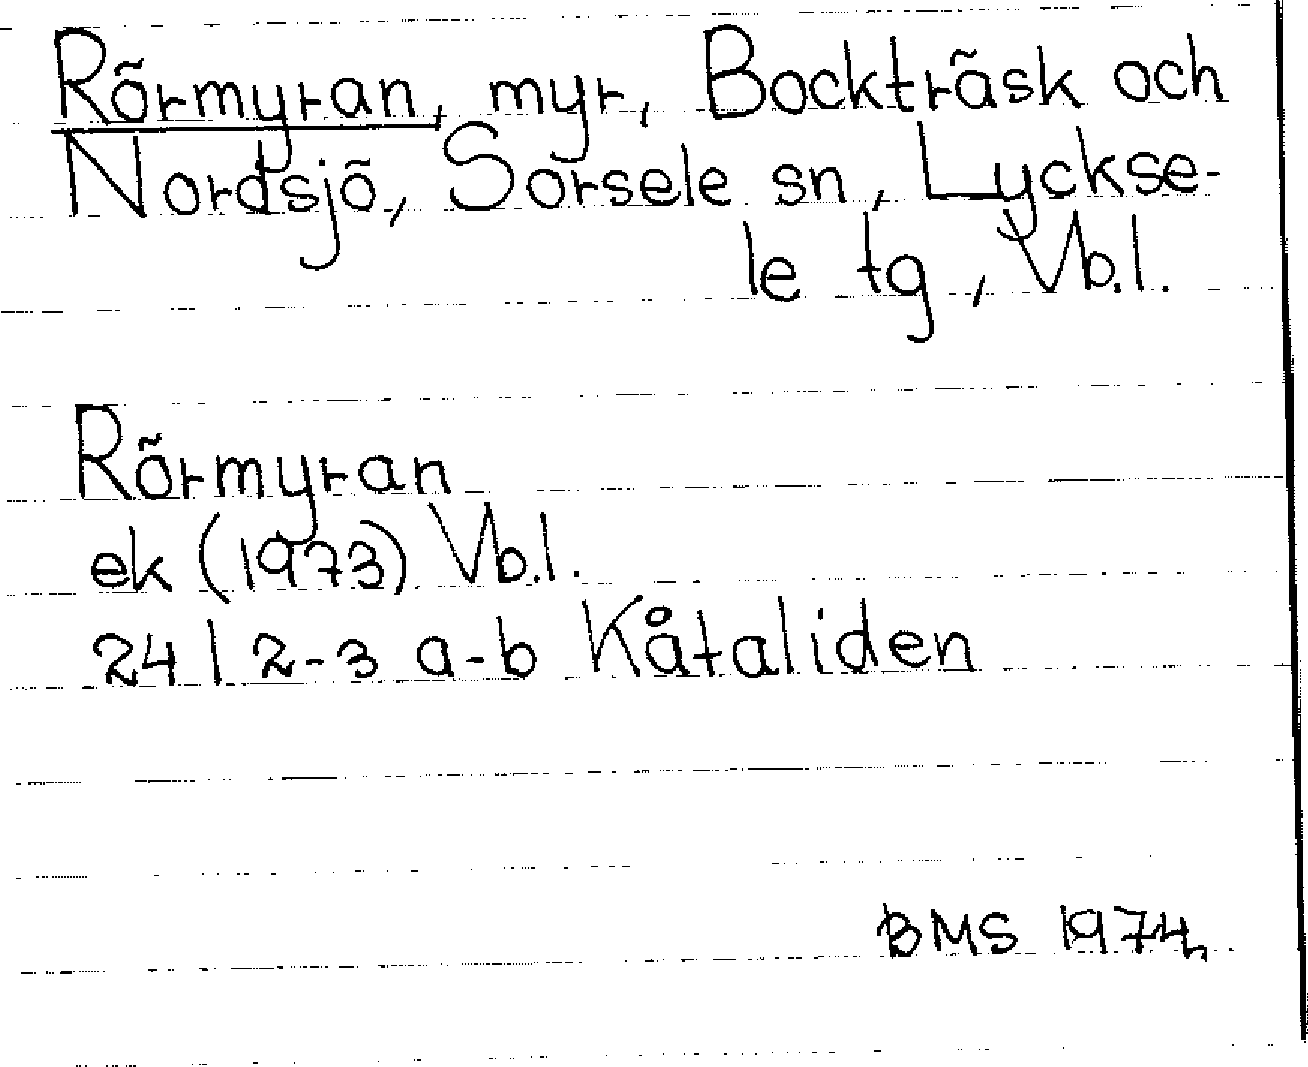 Rörmyran, myr, Bockträsk och
Nordsjö, Sorsele sn, Lyckse-
le tg, Vb.l.
Rörmyran
ek (1973) Vb.l.
24 I 2-3 a-b Kåtaliden
BMS 1974